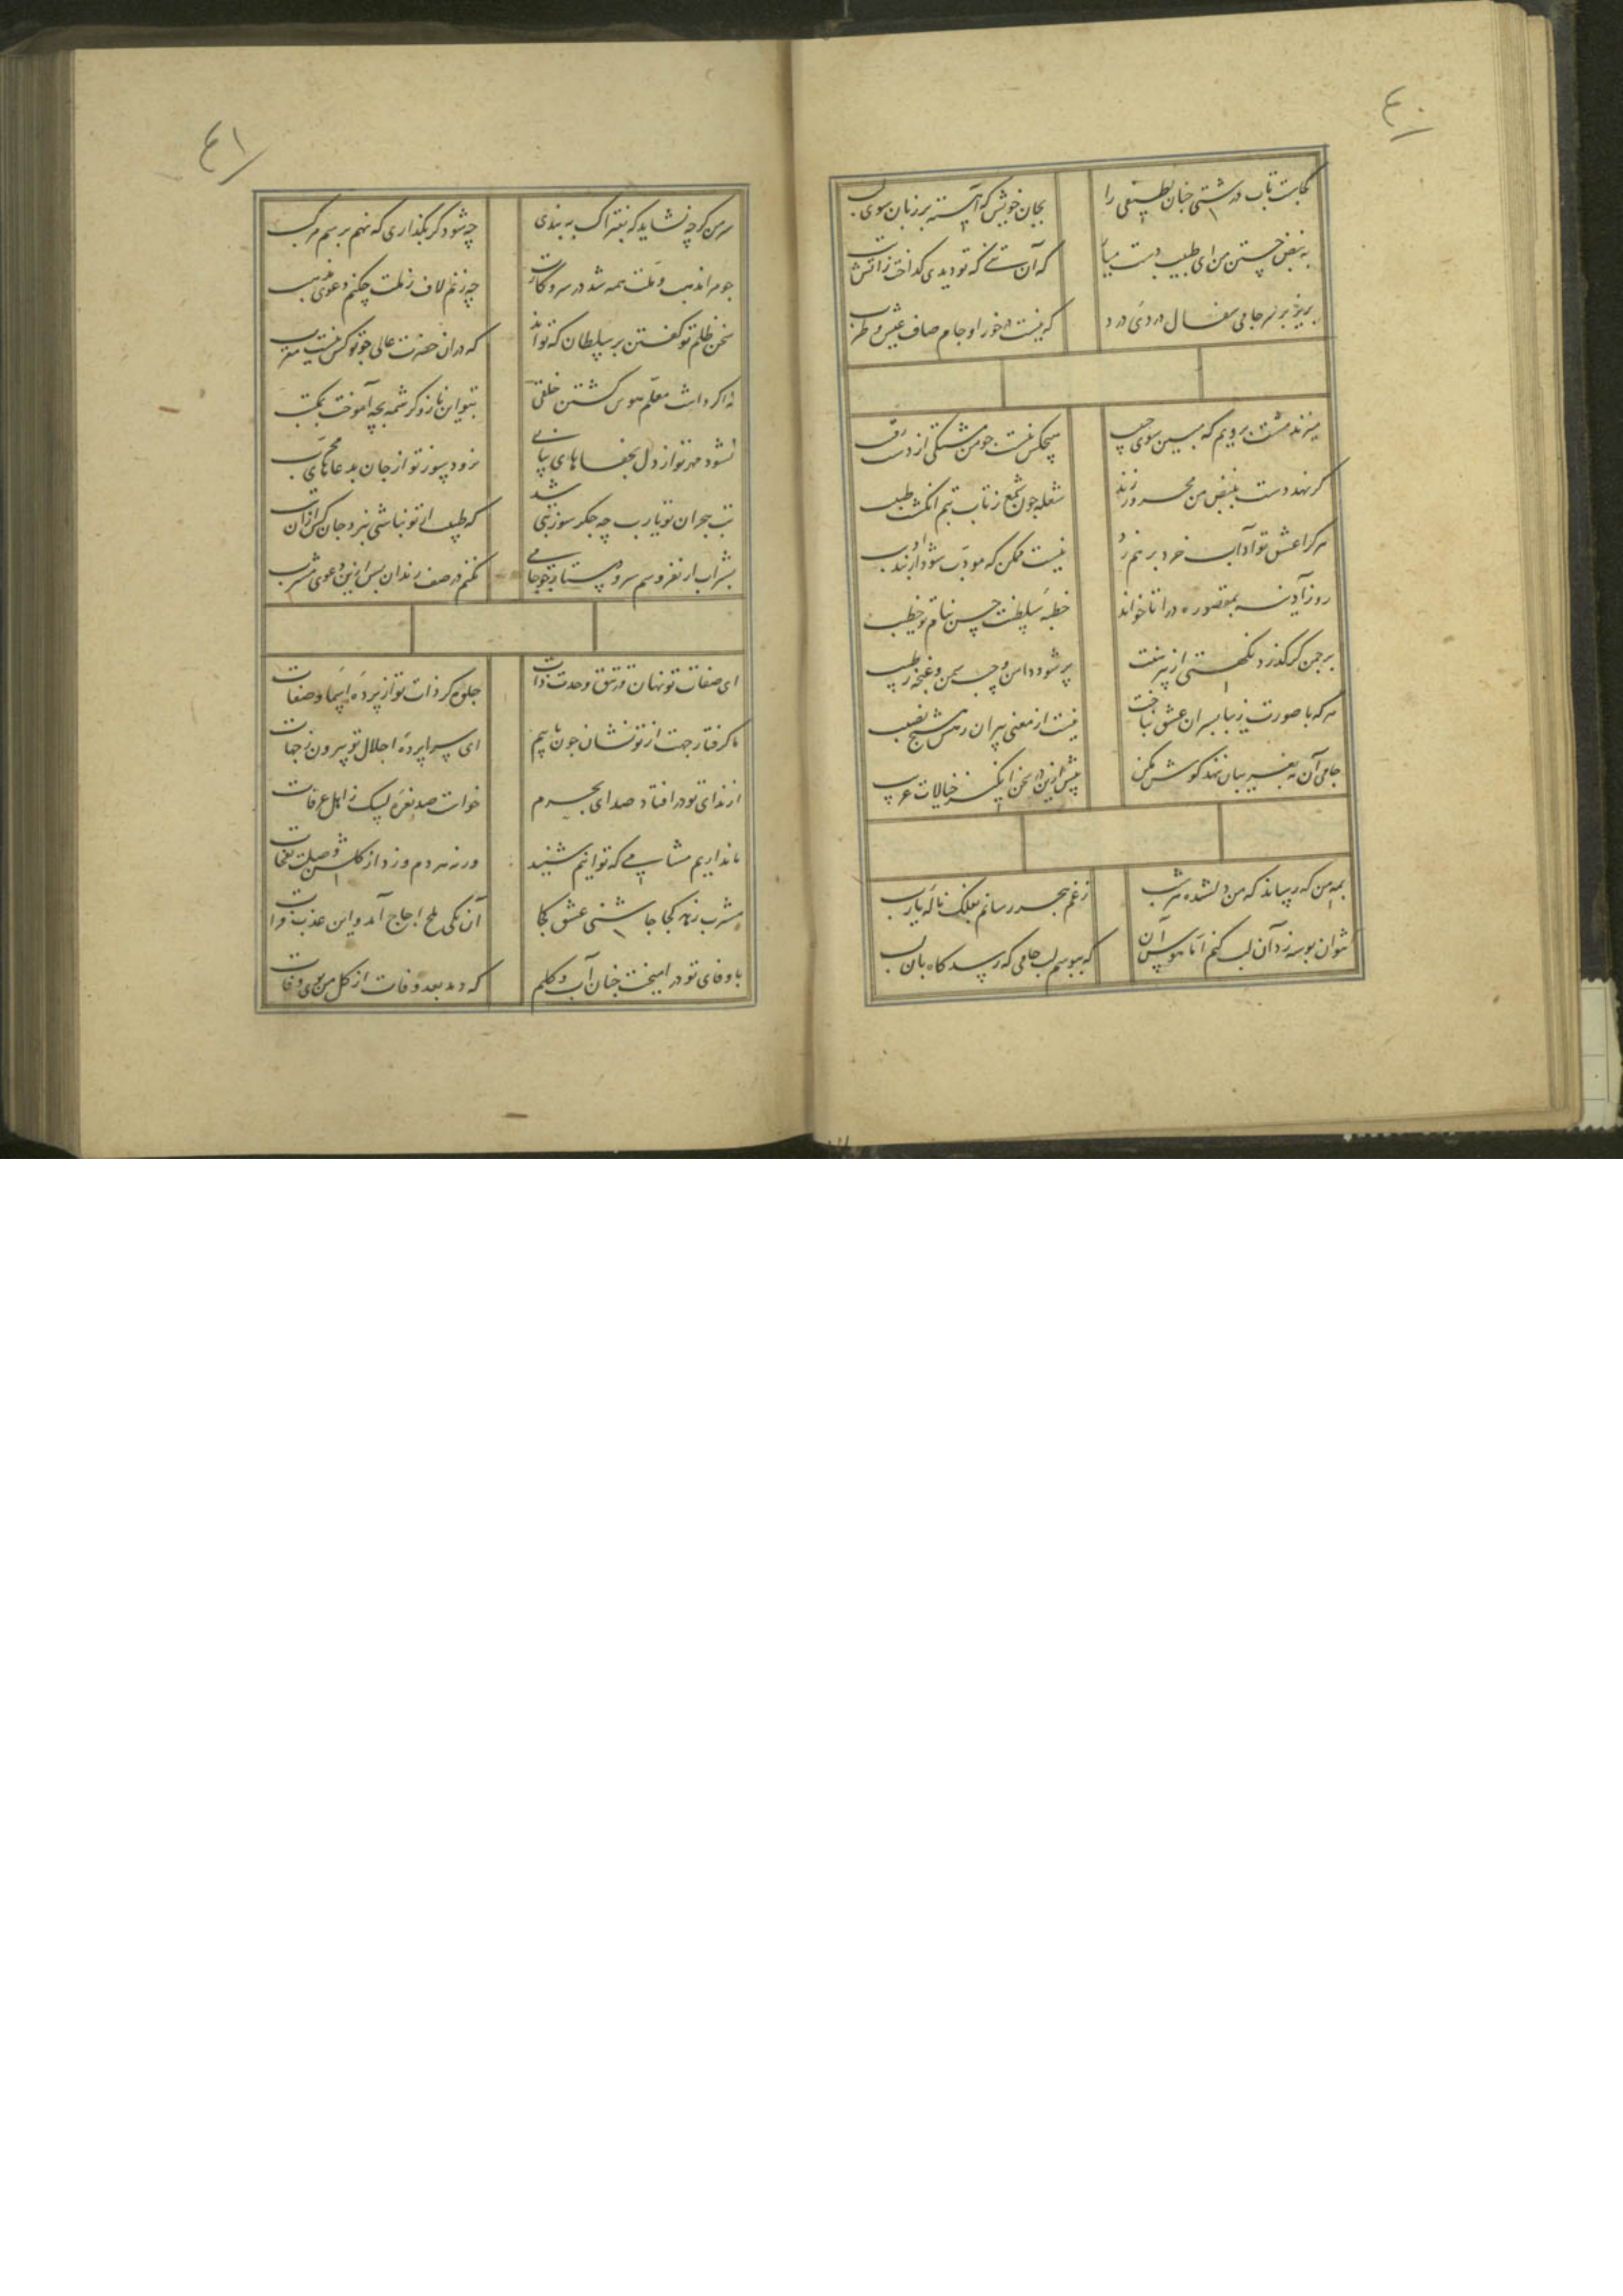 ٤٠
کجاست تاب درشتی چنان لطیفی را
بجان خویش که آهسته بر زبان سوی لب
به نبض جستن من ای طبیب دست میار
که آن تنی که تو دیدی کداخت زآتش تب
بریز بر سر جامی سفال دردی درد
که نیست در خور او جام صاف عیش و طرب
میزند مشت برویم که مبین سوی حبیب
هیچکس نیست جو من مشتکی از دست رقیب
کر نهد دست بنبض من محرور زند
شعله جون شمع ز تاب تبم انکشت طبیب
هر کرا عشق تو آداب خرد بر هم زد
نیست ممکن که مودب شود از پند ادیب
روز آدینه بمقصوره درا تا خواند
خطبهٔ سلطنت حسن بنام تو خطیب
بر جمن کر کذرد نکهتی از پیرهنت
پر شود دامن و جیب سمن و غنچه ز طیب
هر که با صورت زیبا پسران عشق نباخت
نیست از معنی پیران رهش هیچ نصیب
جامی آن مه بغریبان ننهد کوش مکن
بیش ازین در سخن انکیز خیالات غریب
بمه من که رساند که من دلشده هر شب
ز غم هجر رسانم بفلک نالهٔ یارب
نتوان بوسه زد آن لب کنم اما هوس آن
که ببوسم لب جامی که رسد کاه بآن لب
٤١
سر من کرچه نشاید که بفتراک ببندی
چه شود کر بکذاری که نهم بر سم مرکب
جو مرا مذهب و ملت همه شد در سر و کارت
چه زنم لاف ز ملت چکنم دعوی مذهب
سخن ظلم تو کفتن بر سلطان که تواند
که در ان حضرت عالی جو تو کس نیست مقرب
نه اکر داشت معلم هوس کشتن خلقی
بتو این ناز و کرشمه بچه آموخت بمکتب
نشود مهر تو از دل بجفاهای پیاپی
نرود سوز تو از جان بدعاهای مجرب
تب هجران تو یارب چه جکر سوز تبی شد
که طبیب ار تو نباشی نبرد جان کس ازان تب
بشراب ار نفروشم سر و دستار جو جامی
نکنم در صف رندان پس ازین دعوی مشرب
ای صفات تو نهان در تتق وحدت ذات
جلوه کر ذات تو از پردهٔ اسما و صفات
ما کرفتار جهت از تو نشان جون یابیم
ای سراپردهٔ اجلال تو بیرون ز جهات
از ندای تو در افتاد صدای بحرم
خواست صد نعره لبیک ز اهل عرفات
ما نداریم مشامی که توانیم شنید
ورنه هر دم وزد از کلشن وصلت نفحات
مشرب زهد کجا چاشنی عشق کجا
آن یکی ملح اجاج آمد و این عذب فرات
با وفای تو در امیخت چنان آب و کلم
که دمد بعد وفات از کل من بوی وفات